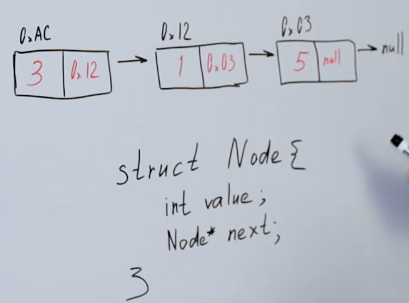 0xAC 0x12 0x03
3 0x12 1 0x03 5 null null
struct Node{
int value;
Node* next;
}